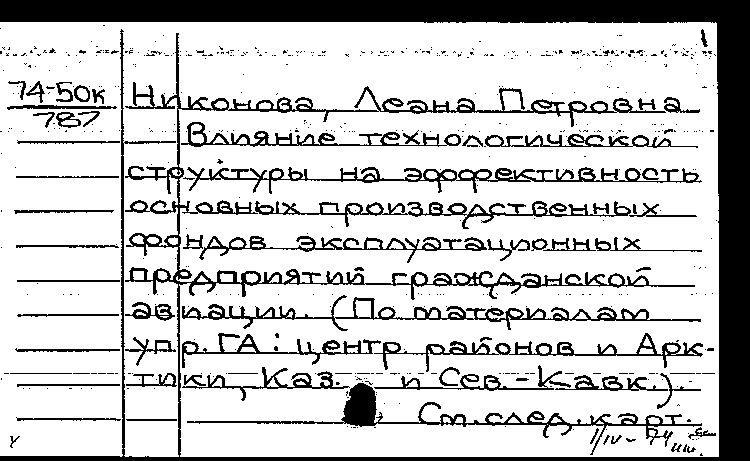 1
74-50к Никонова, Леана Петровна
787
Влияние технологической
структуры на эффективность
основных производственных
фондов эксплуатационных
предприятий гражданской
авиации. (По материалам
упр. ГА: центр. районов и Арк-
тики, Каз. и Сев.-Кавк.).
См. след. карт.
1/IV-74